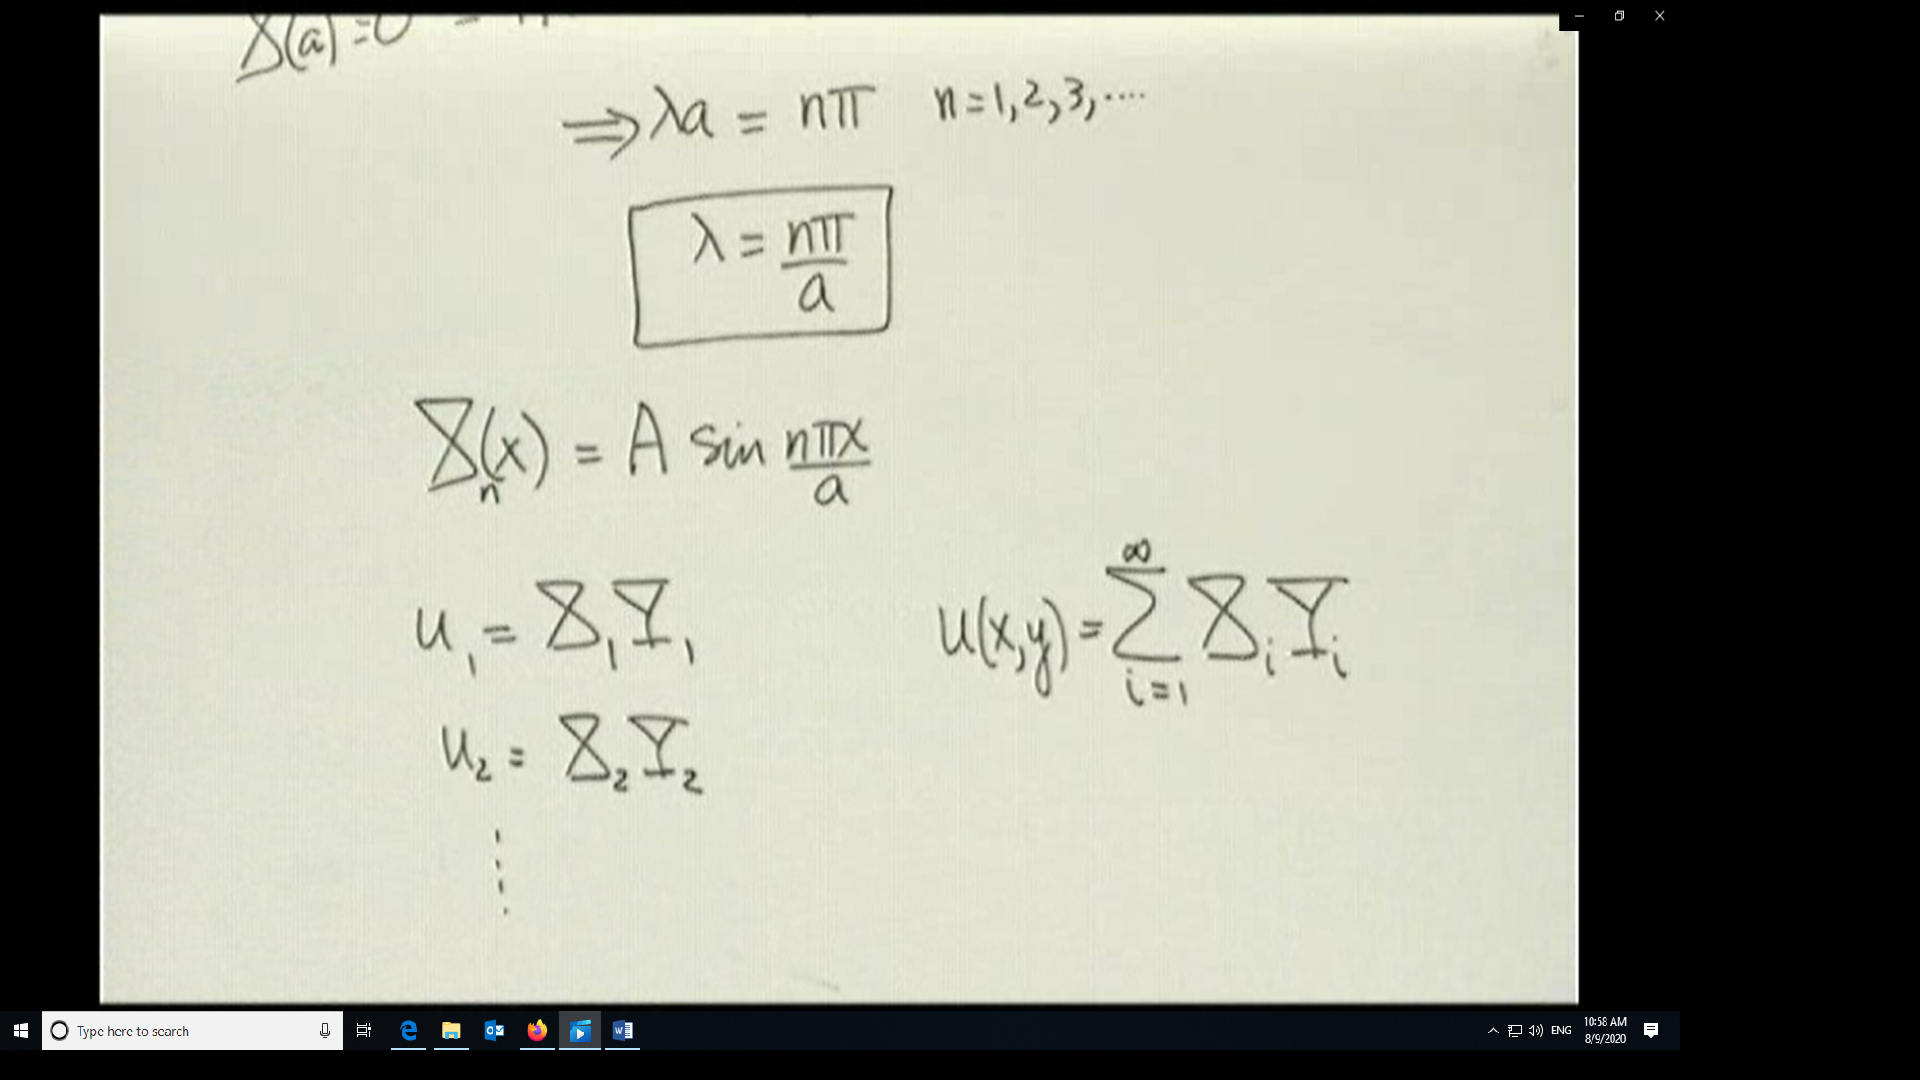 X(a)=0 =
⟹ λa = nπ   n=1,2,3,....
λ = nπ/a
X_n(x) = A sin nπx/a
u_1 = X_1 Y_1
u(x,y) = ∑_{i=1}^{∞} X_i Y_i
u_2 = X_2 Y_2
⋮
Type here to search
ENG
10:58 AM
8/9/2020